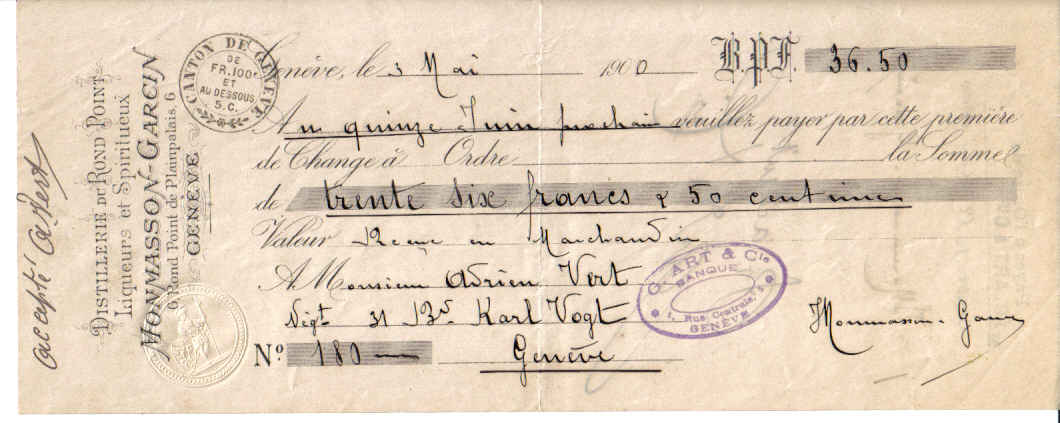 accepté A. Vert
DISTILLERIE DU ROND POINT
Liqueurs et Spiritueux
MONMASSON-GARCIN
6 Rond Point de Plainpalais, 6
GENÈVE
CANTON DE GENÈVE
DE
FR. 100
ET
AU DESSOUS
5. C.
Genève, le 3 Mai 1900 B.P.F. 36.50
Au quinze Juin prochain veuillez payer par cette première
de Change à Ordre la Somme
de trente six francs & 50 centimes
Valeur Reçue en Marchandise
A Monsieur Adrien Vert
Négt 31 Bd. Karl Vogt
Nº 180 Genève
G. ART & Cie
BANQUE
1, Rue Centrale, 1
GENÈVE
Monmasson-Garcin